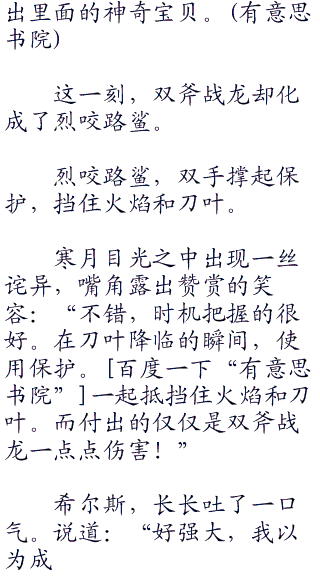 出里面的神奇宝贝。(有意思
书院)
这一刻，双斧战龙却化
成了烈咬路鲨。
烈咬路鲨，双手撑起保
护，挡住火焰和刀叶。
寒月目光之中出现一丝
诧异，嘴角露出赞赏的笑
容：“不错，时机把握的很
好。在刀叶降临的瞬间，使
用保护。[百度一下“有意思
书院”]一起抵挡住火焰和刀
叶。而付出的仅仅是双斧战
龙一点点伤害！”
希尔斯，长长吐了一口
气。说道：“好强大，我以
为成